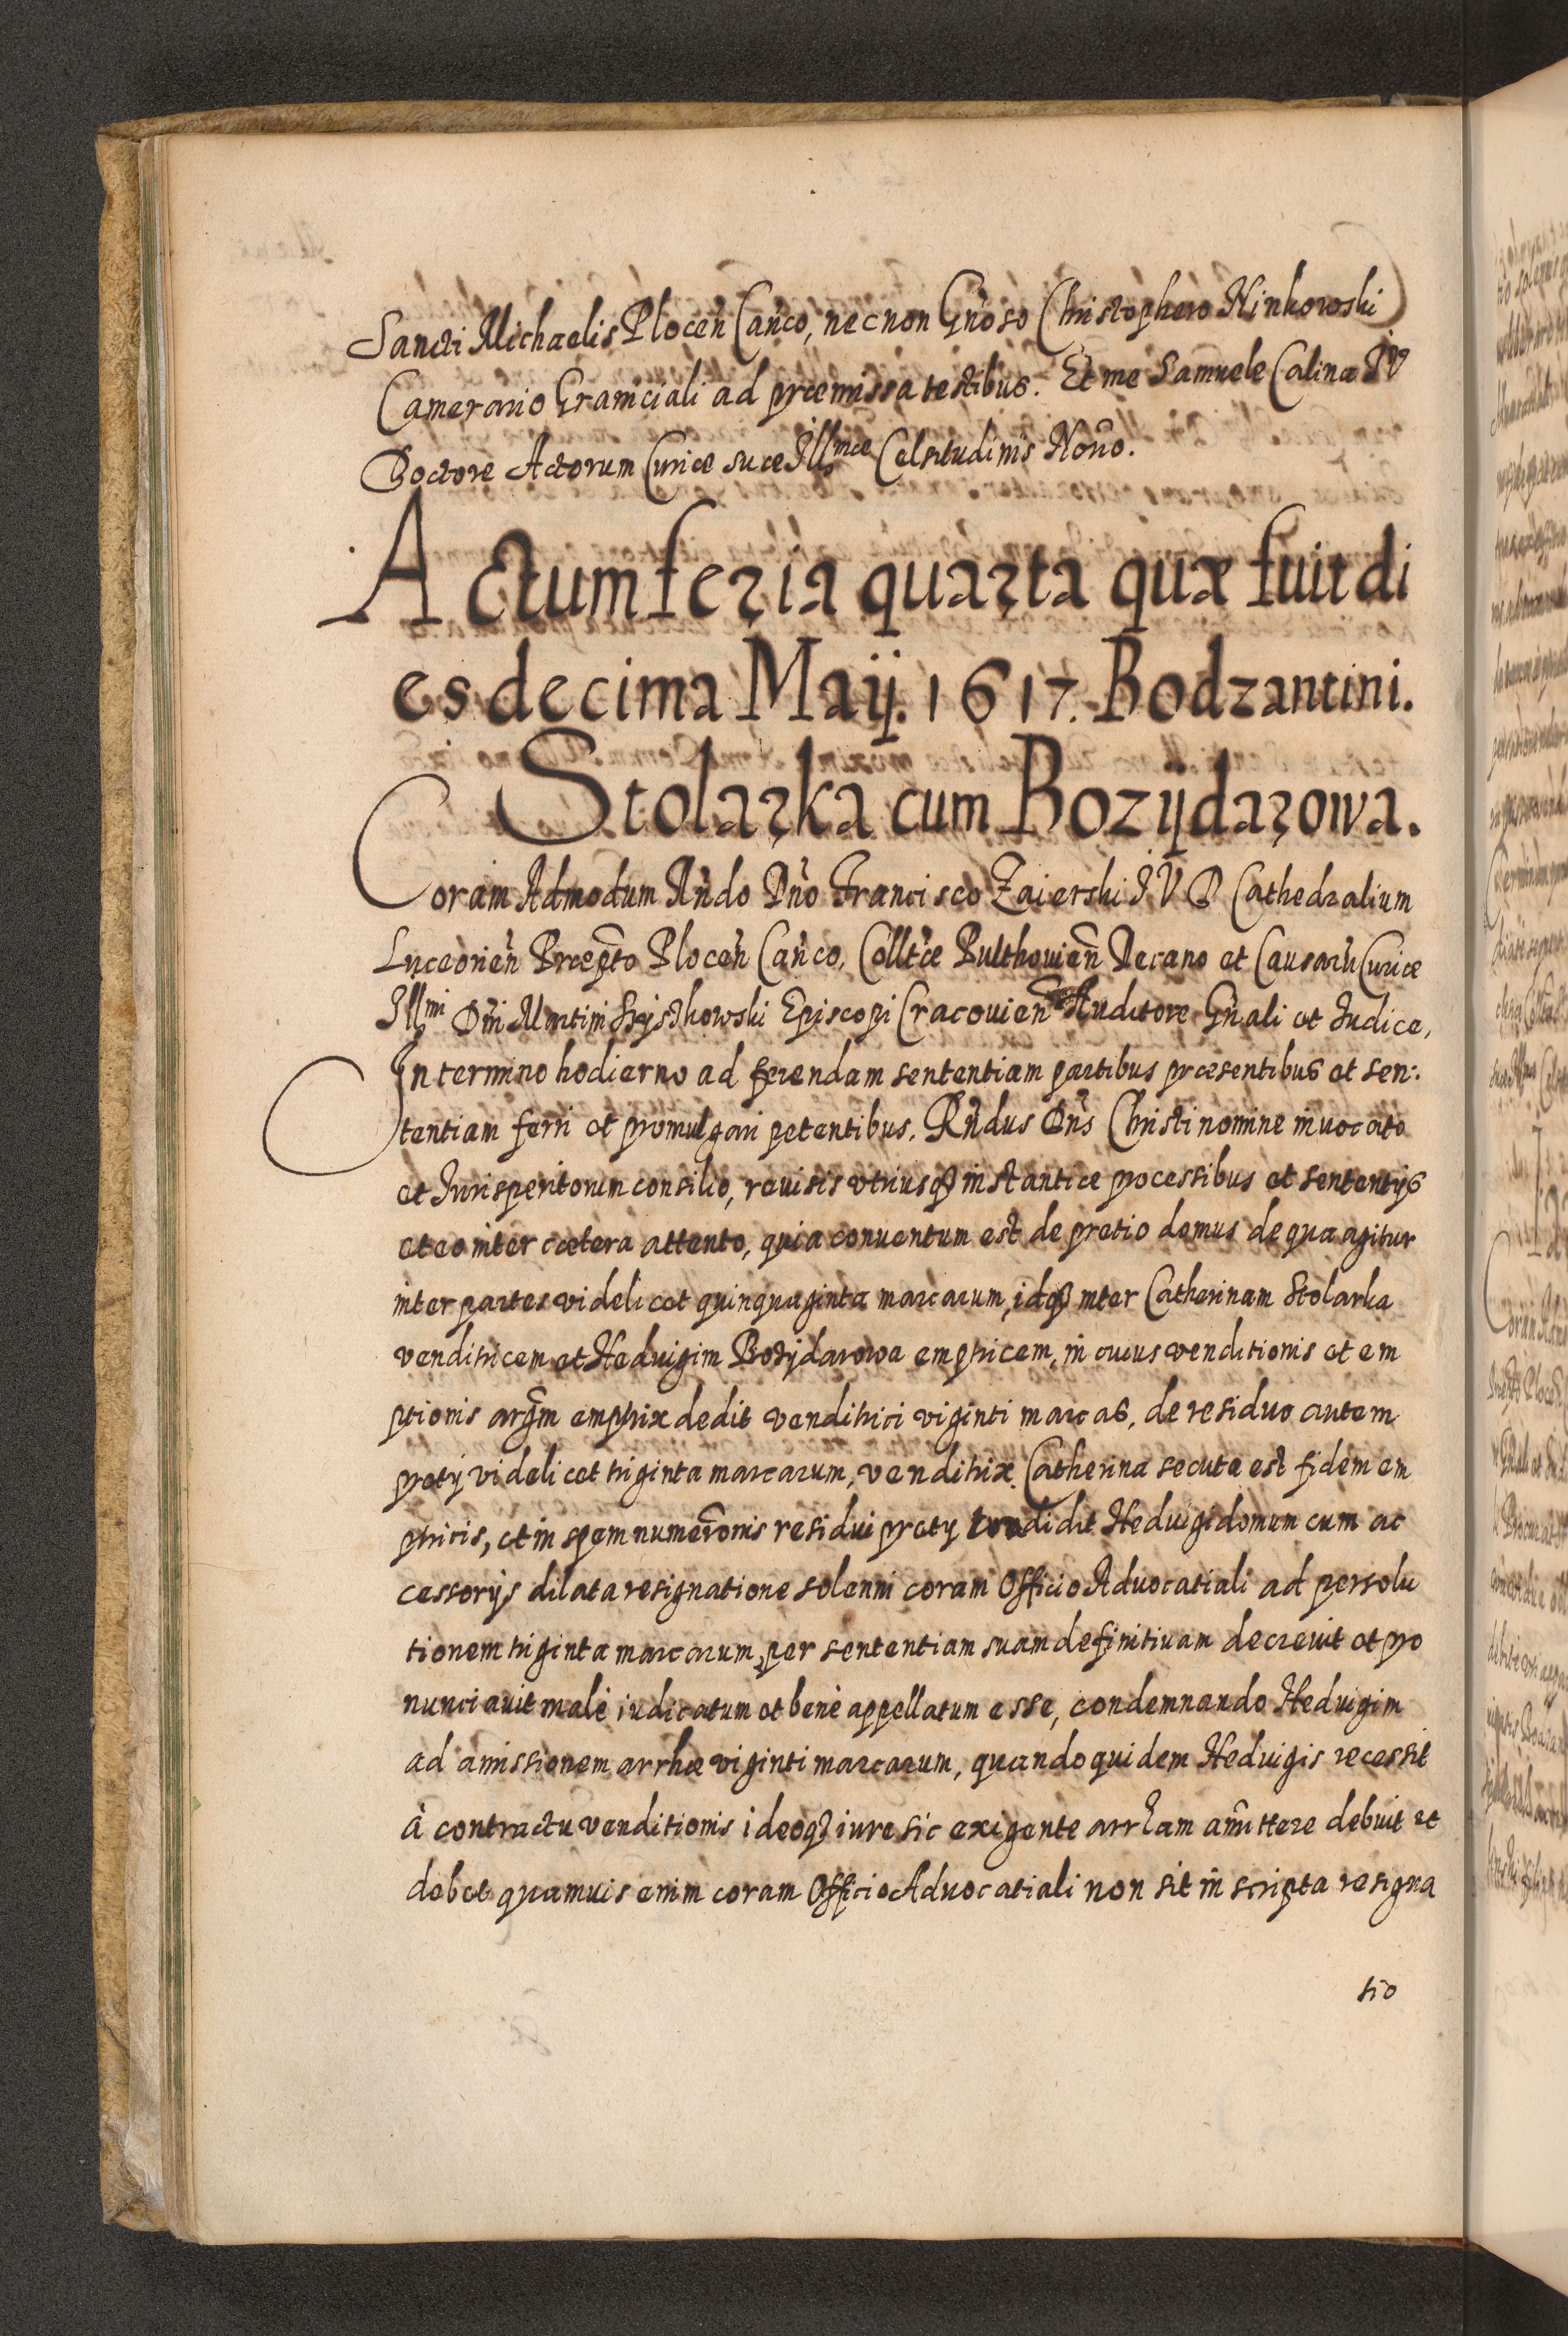 Sancti Michaelis Plocen̄ Can̄co, necnon Gn̄oso Christophero Ninkowski
Camerario Graniciali ad præmissa testibus. Et me Samuele Calinæ IV
Doctore Actorum Curiæ suæ Ill^mæ Celsitudinis Notr̄o.
Actum feria quarta quæ fuit di
es decima Maij. 1617. Bodzantini.
Stolarka cum Bozÿdarowa.
Coram Admodum Rn̄do Dn̄o Francisco Zaierski I V D Cathedralium
Luceorien̄ Præpto Plocen̄ Can̄co, Colltæ Pulthouien̄ Decano et Causarū Curiæ
Ill^mi Dn̄i Martini Szyszkowski Episcopi Cracouien̄ Auditore Gn̄ali et Iudice,
In termino hodierno ad ferendam sententiam partibus præsentibus et sen:
tentiam ferri et promulgari petentibus. Rn̄dus Dn̄s Christi nomine inuocato
et Iurisperitorum consilio, reuisis vtriusq₃ instantiæ processibus et sententijs
et eo inter cætera attento, quia conuentum est de pretio domus de qua agitur
inter partes videlicet quinquaginta marcarum, idq₃ inter Catherinam Stolarka
venditricem et Heduigim Bozÿdarowa emptricem, in cuius venditionis et em
ptionis arg̃m emptrix dedit venditrici viginti marcas, de residuo autem
pretij videlicet triginta marcarum, venditrix Catherina secuta est fidem em
ptricis, et in spem numerōnis residui pretij tradidit Heduigi domum cum ac
cessorijs dilata resignatione solenni coram Officio Aduocatiali ad persolu
tionem triginta marcarum, per sententiam suam definitiuam decreuit et pro
nunciauit malè iudicatum et benè appellatum esse, condemnando Heduigim
ad amissionem arrhæ viginti marcarum, quandoquidem Heduigis recessit
à contractu venditionis ideoq₃ iure sic exigente arrham am̄ittere debuit et
debet quamuis enim coram Officio Aduocatiali non sit in scripta resigna
tio